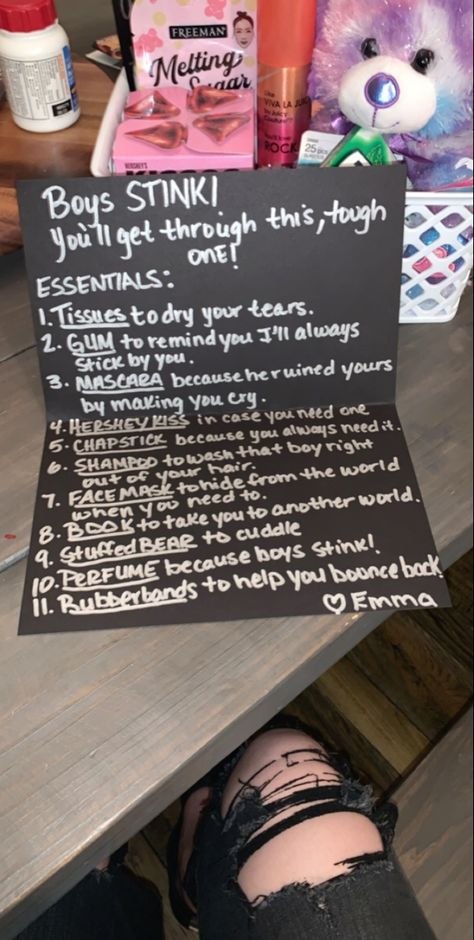 FREEMAN
Melting
Sugar
HERSHEY'S
KISSES
Like
VIVA LA JUICY
by Juicy
Couture?
You'll love
ROCK
25 pcs
Boys STINK!
You'll get through this, tough
ONE!
ESSENTIALS:
1. Tissues to dry your tears.
2. GUM to remind you I'll always
stick by you.
3. MASCARA because he ruined yours
by making you cry.
4. HERSHEY KISS in case you need one
5. CHAPSTICK because you always need it.
6. SHAMPOO to wash that boy right
out of your hair.
7. FACE MASK to hide from the world
when you need to.
8. BOOK to take you to another world.
9. Stuffed BEAR to cuddle
10. PERFUME because boys stink!
11. Rubberbands to help you bounce back
♡ Emma